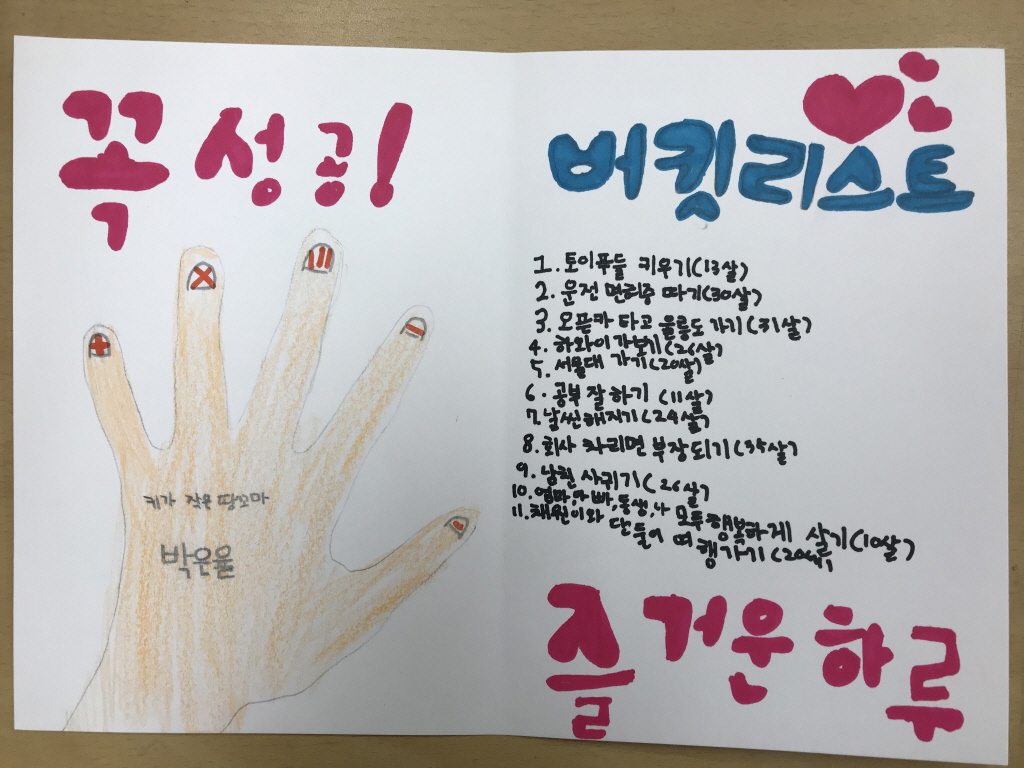 꼭 성공!
키가 작은 땅꼬마
박은율
버킷리스트
1. 토이푸들 키우기(13살)
2. 운전 면허증 따기(30살)
3. 오픈카 타고 울릉도 가기(31살)
4. 하와이 가보기(26살)
5. 서울대 가기(20살)
6. 공부 잘 하기 (11살)
7. 날씬해지기(24살)
8. 회사 차리면 부장되기(35살)
9. 남친 사귀기(26살)
10. 엄마, 아빠, 동생, 나 모두 행복하게 살기(10살)
11. 채원이와 단 둘이 여행가기(20살)
즐거운 하루